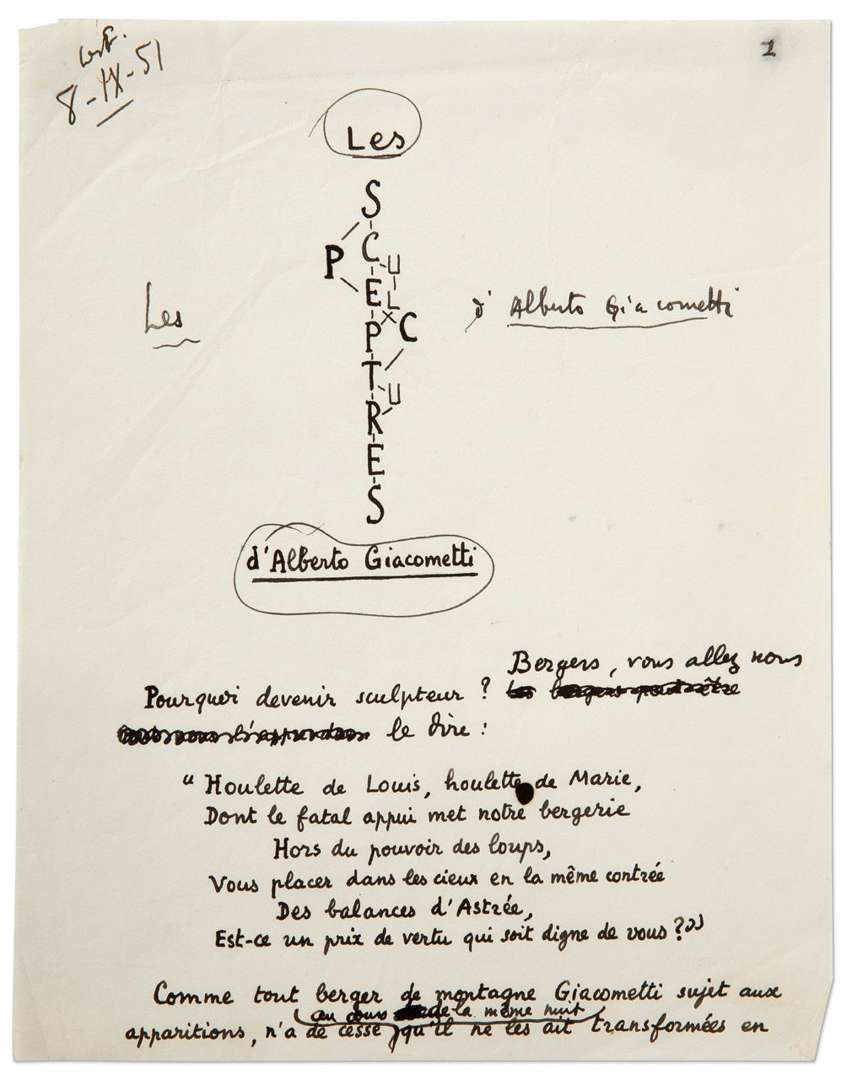 8-IX-51
1
Les
S
C
P
U
E
L
X
C
P
T
U
R
E
S
Les
d'Alberto Giacometti
d'Alberto Giacometti
Bergers, vous allez nous
Pourquoi devenir sculpteur ?
le dire :
“ Houlette de Louis, houlette de Marie,
Dont le fatal appui met notre bergerie
Hors du pouvoir des loups,
Vous placer dans les cieux en la même contrée
Des balances d'Astrée,
Est-ce un prix de vertu qui soit digne de vous ? ”
Comme tout berger de montagne Giacometti sujet aux
au cours de la même nuit
apparitions, n'a de cesse qu'il ne les ait transformées en